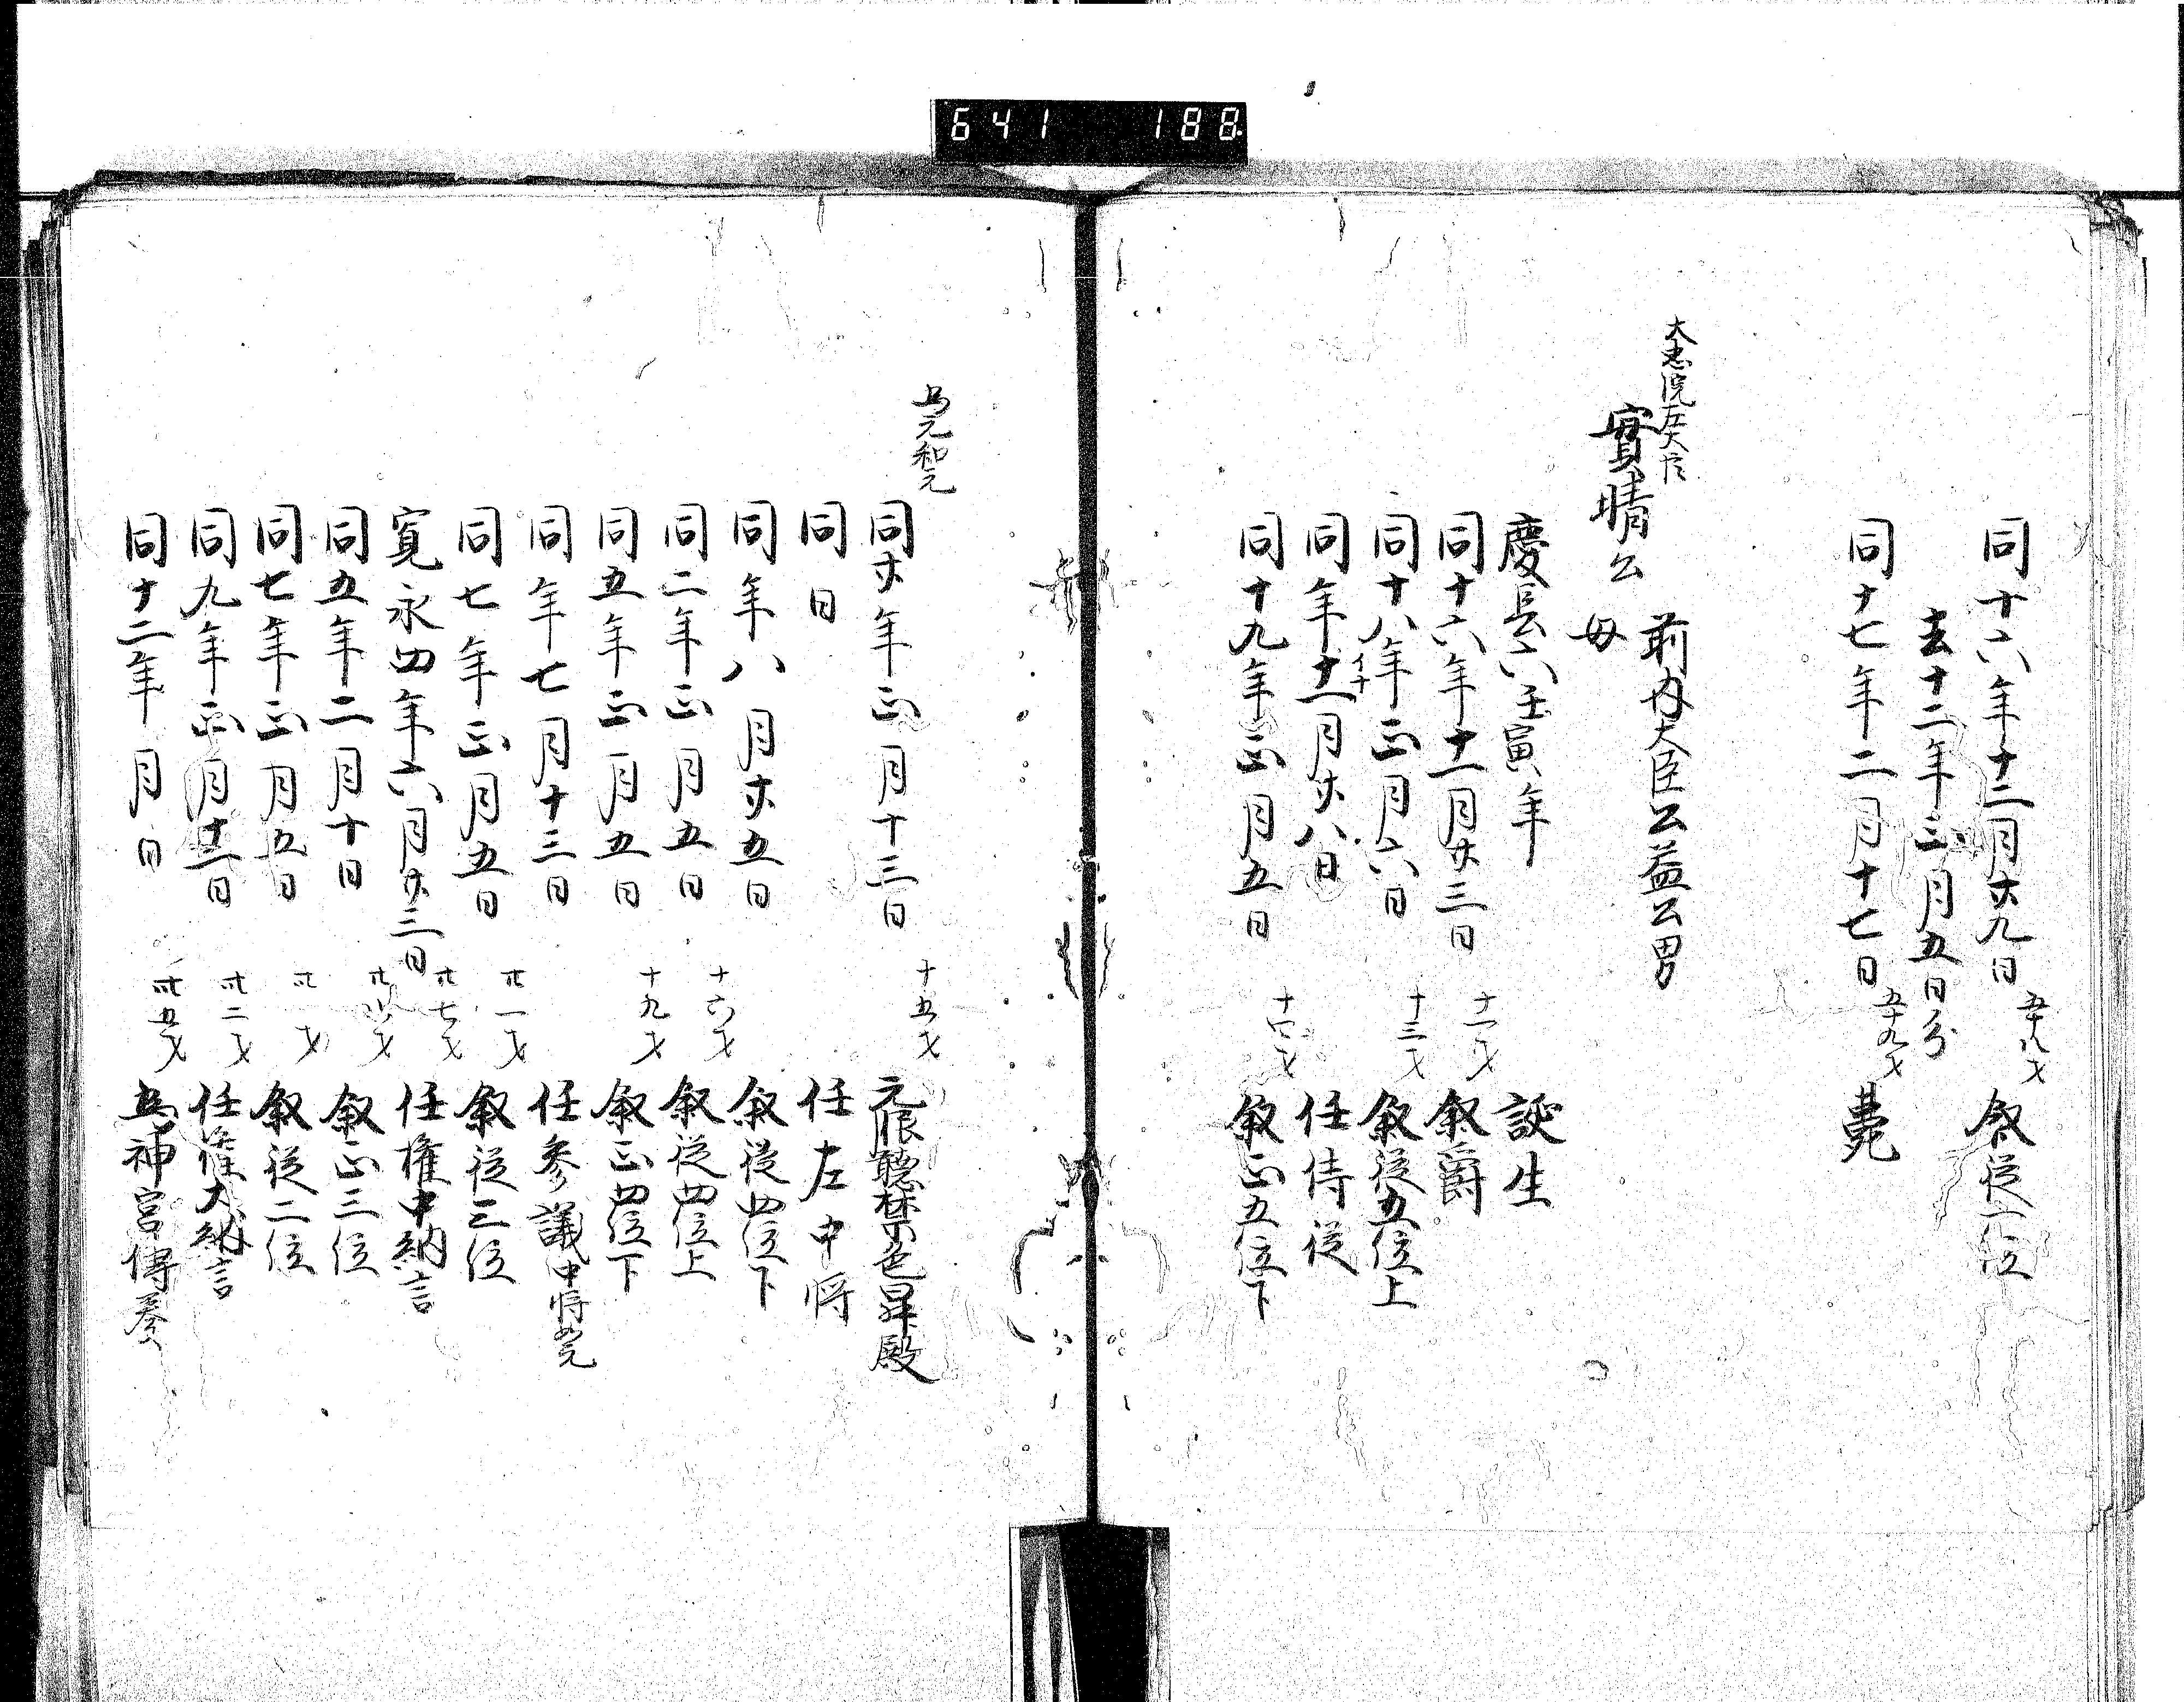 641 188
同十六年十二月廿九日 五十八才 叙従一位
去十二年正月五日分
同十七年二月十七日 五十九才 薨
大忠院左大臣
實晴公 前内大臣公益公男
母
慶長六壬寅年 誕生
同十六年十一月廿三日 十一才 叙爵
同十八年正月六日 十三才 叙従五位上
同年十一月廿八日 任侍従
同十九年正月五日 叙正五位下
為元和元
同廿年正月十三日 十五才 元服聴禁色昇殿
同日 任左中将
同年八月廿五日 叙従四位下
同二年正月五日 十六才 叙従四位上
同五年正月五日 十九才 叙正四位下
同年七月十三日 任参議中将如元
同七年正月五日 廿一才 叙従三位
寛永四年六月廿三日 廿七才 任権中納言
同五年二月十日 廿八才 叙正三位
同七年正月五日 卅才 叙従二位
同九年正月十一日 卅二才 任権大納言
同十二年月日 卅五才 為神宮傳奏